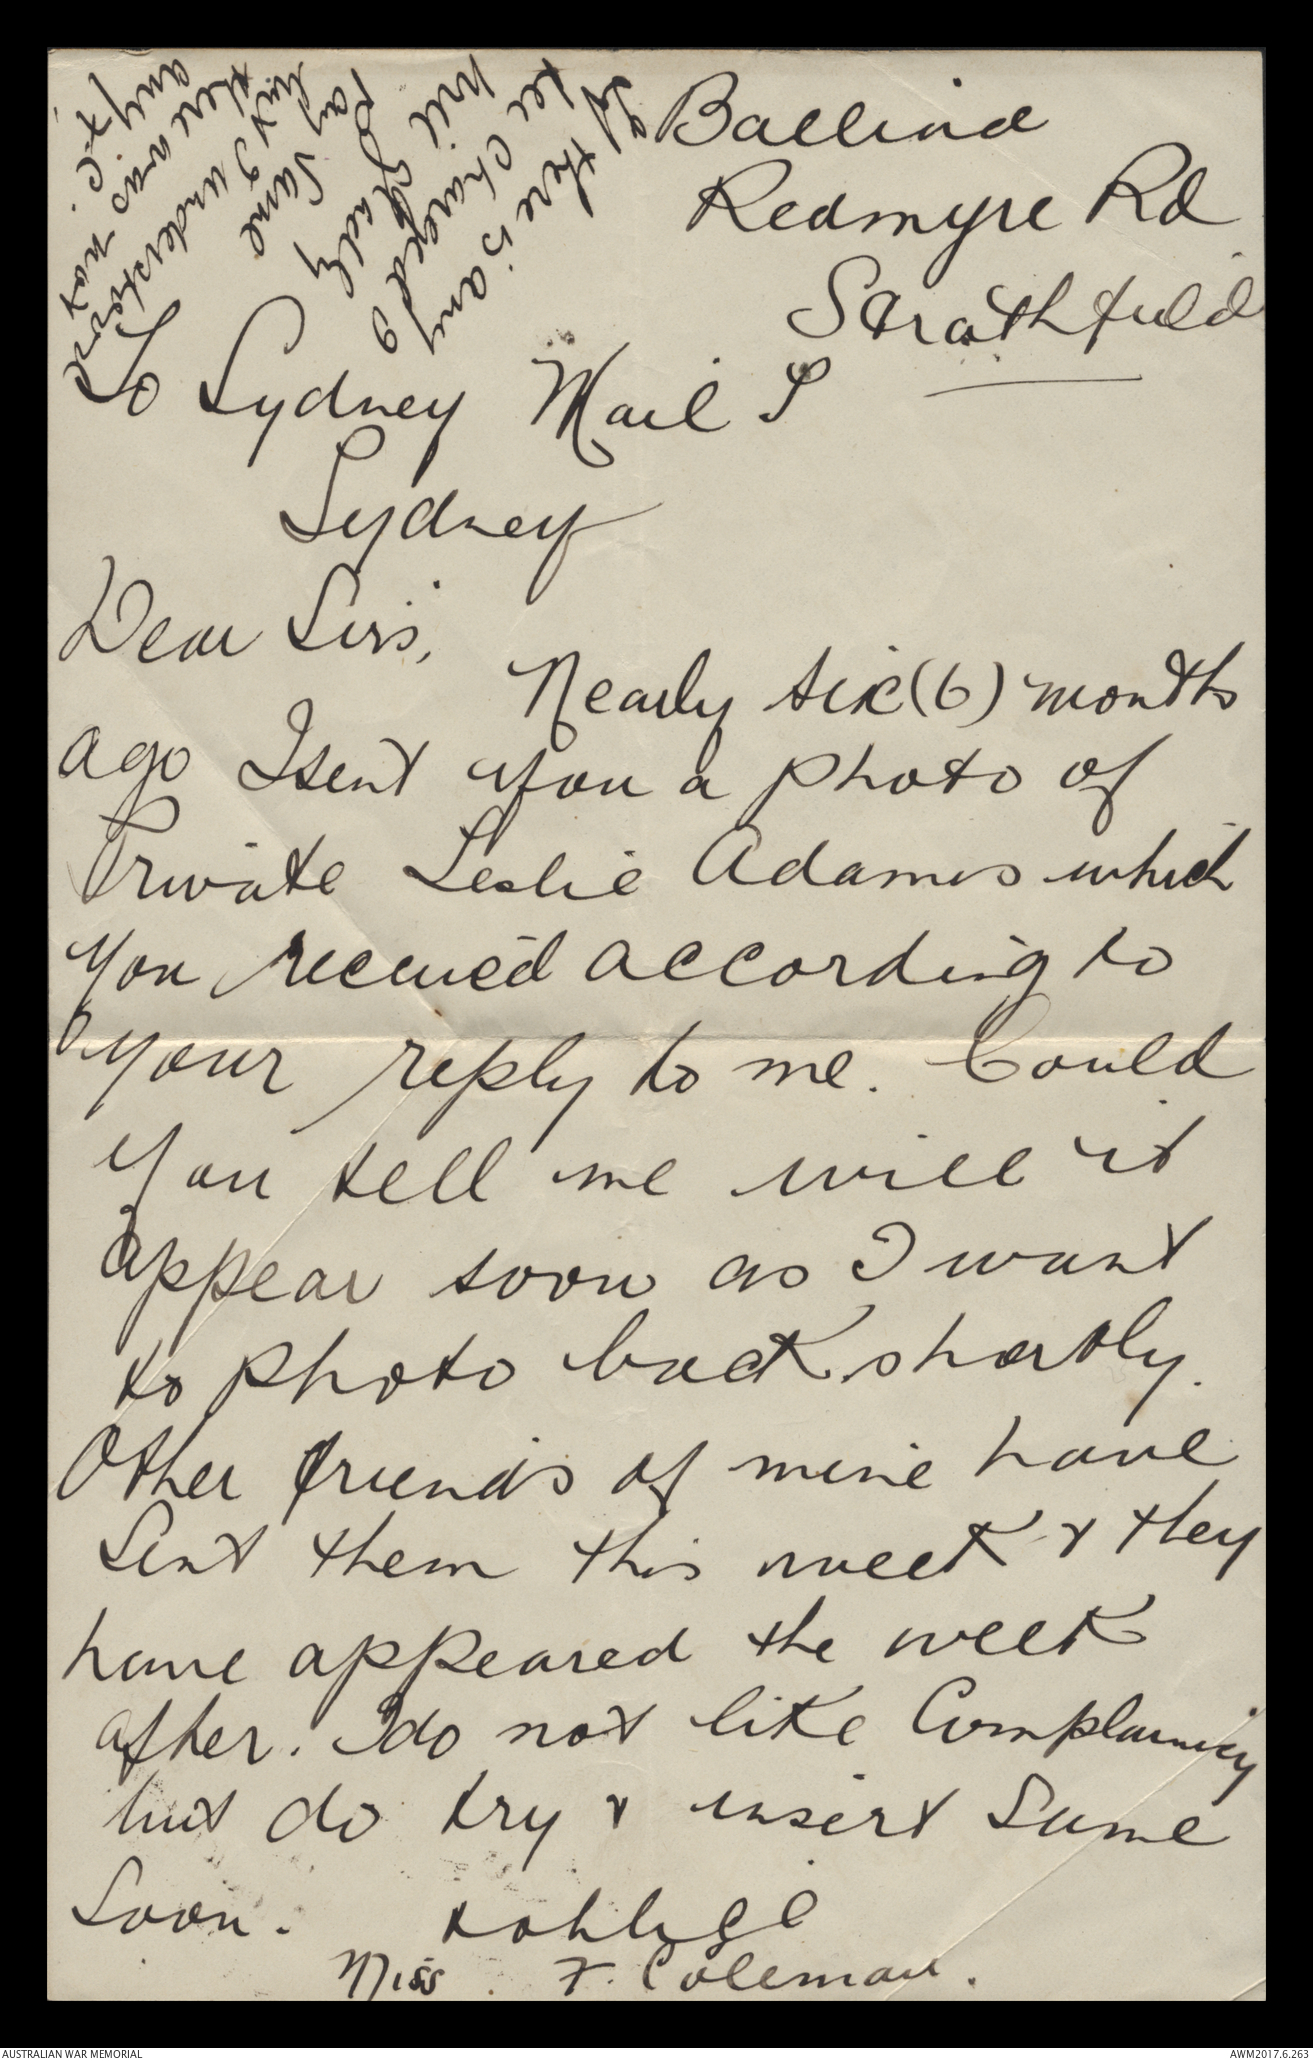 Ballina
Redmyre Rd
Strathfield
To Sydney Mail
Sydney
Dear Sirs,
Nearly six (6) months
ago I sent you a photo of
Private Leslie Adams which
you received according to
your reply to me. Could
you tell me will it
appear soon as I want
to photo back shortly.
Other friends of mine have
sent them this week & they
have appeared the week
after. I do not like Complaining
but do try & insert same
soon. to oblige
Miss F. Coleman.
If there is any
fee charged I
will gladly
pay same
but I understood
there was not
any F.C.
AUSTRALIAN WAR MEMORIAL
AWM2017.6.263